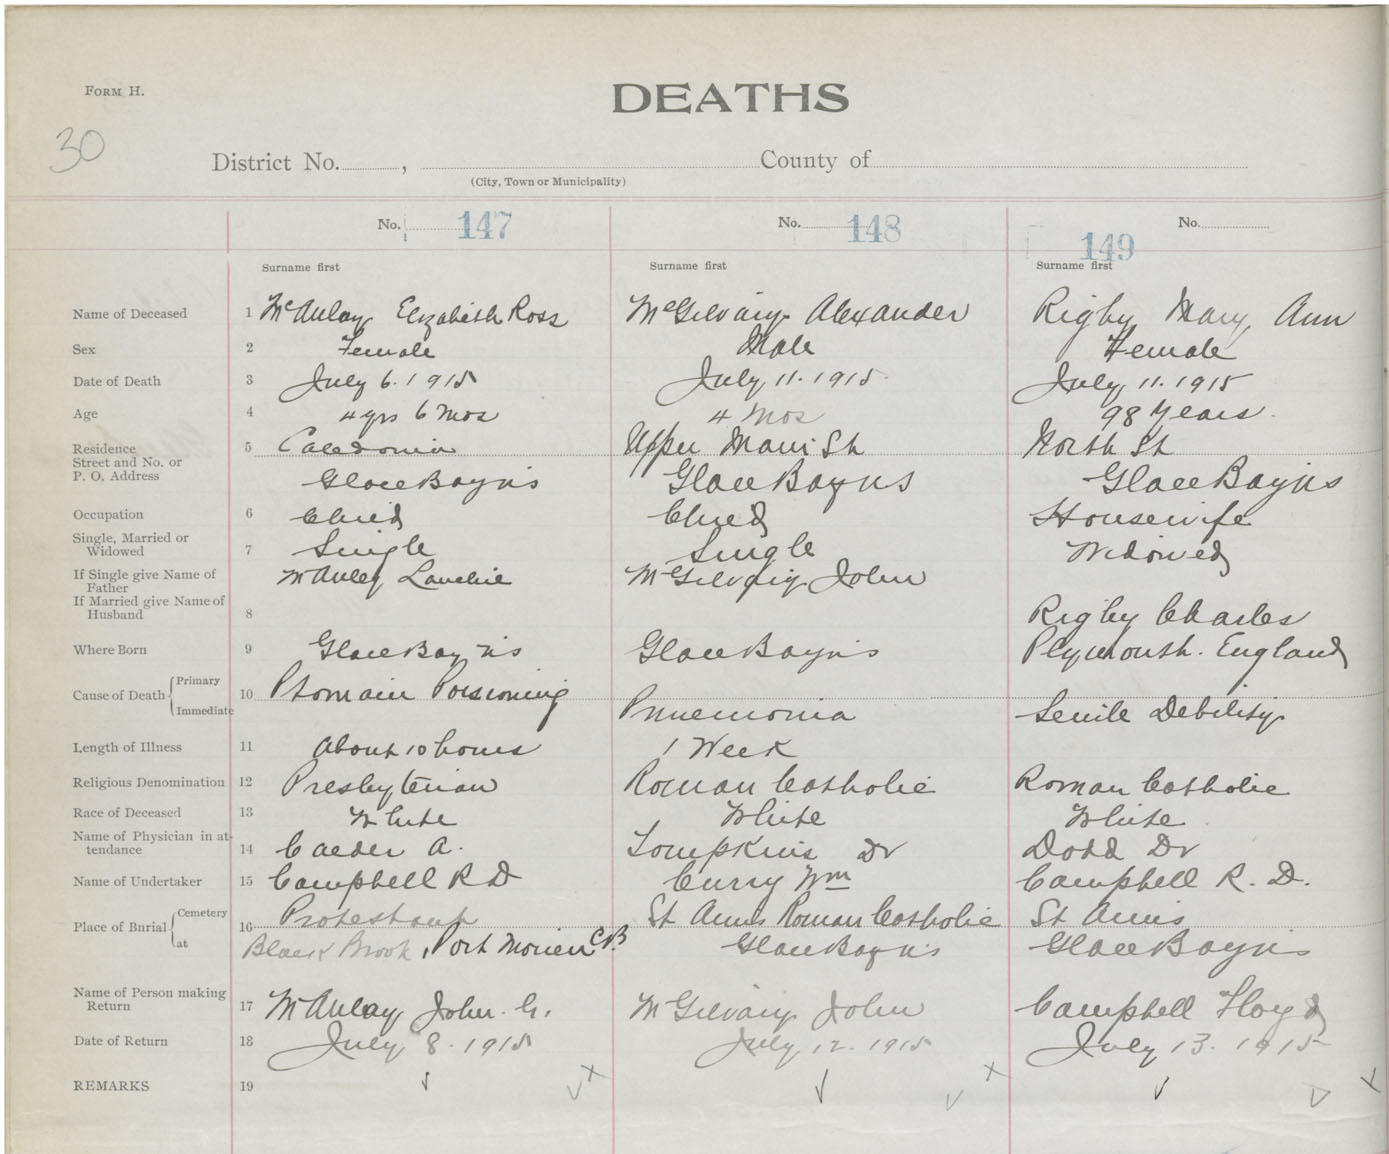 FORM H.
DEATHS
30
District No. , County of
(City, Town or Municipality)
No. 147 No. 148 No. 149
Surname first Surname first Surname first
Name of Deceased 1 McAulay Elizabeth Ross McGilvary Alexander Rigby Mary Ann
Sex 2 Female Male Female
Date of Death 3 July 6. 1915 July 11. 1915 July 11. 1915
Age 4 4 yrs 6 Mos 4 Mos 98 Years.
Residence 5 Caledonia Upper Main St North St
Street and No. or
P. O. Address Glace Bay NS Glace Bay NS Glace Bay NS
Occupation 6 Child Child Housewife
Single, Married or
Widowed 7 Single Single Widowed
If Single give Name of McAuley Lauchie McGilvary John
Father
If Married give Name of
Husband 8 Rigby Charles
Where Born 9 Glace Bay NS Glace Bay NS Plymouth. England
Cause of Death Primary 10 Ptomain Poisoning
Immediate Pnuemonia Senile Debility
Length of Illness 11 About 10 hours 1 Week
Religious Denomination 12 Presbyterian Roman Catholic Roman Catholic
Race of Deceased 13 White White White
Name of Physician in at-
tendance 14 Calder A. Tompkins Dr Dodd Dr
Name of Undertaker 15 Campbell R D Curry Wm Campbell R. D.
Place of Burial Cemetery 16 Protestant St Anns Roman Catholic St Anns
at Black Brook, Port Morien CB Glace Bay NS Glace Bay NS
Name of Person making
Return 17 McAulay John. G. McGilvary John Campbell Floyd
Date of Return 18 July 8. 1915 July 12. 1915 July 13. 1915
REMARKS 19